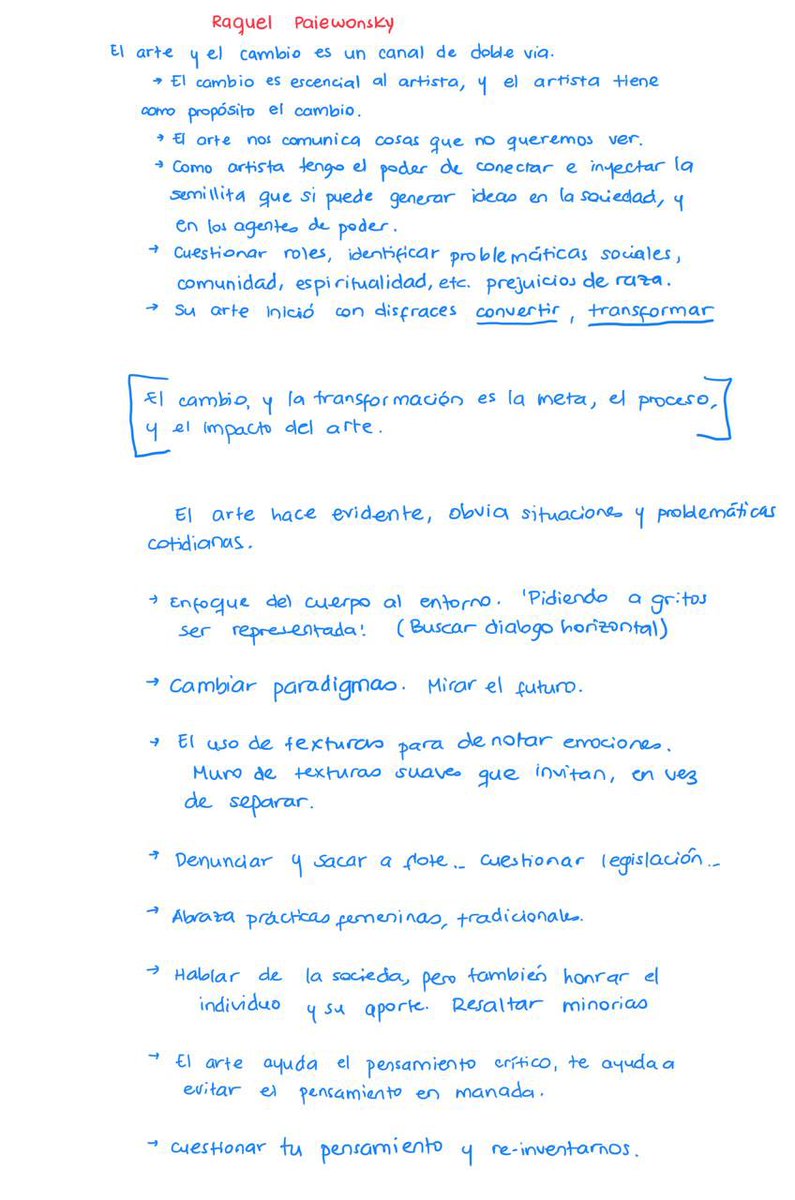 Raquel Paiewonsky
El arte y el cambio es un canal de doble via.
→ El cambio es escencial al artista, y el artista tiene
como propósito el cambio.
→ El arte nos comunica cosas que no queremos ver.
→ Como artista tengo el poder de conectar e inyectar la
semillita que si puede generar ideas en la sociedad, y
en los agentes de poder.
→ Cuestionar roles, identificar problemáticas sociales,
comunidad, espiritualidad, etc. prejuicios de raza.
→ Su arte inició con disfraces convertir, transformar
[El cambio, y la transformación es la meta, el proceso,
y el impacto del arte.]
El arte hace evidente, obvia situaciones y problemáticas
cotidianas.
→ Enfoque del cuerpo al entorno. 'Pidiendo a gritos
ser representada'. (Buscar dialogo horizontal)
→ Cambiar paradigmas. Mirar el futuro.
→ El uso de texturas para denotar emociones.
Muro de texturas suaves que invitan, en vez
de separar.
→ Denunciar y sacar a flote... cuestionar legislación...
→ Abraza prácticas femeninas, tradicionales.
→ Hablar de la socieda, pero también honrar el
individuo y su aporte. Resaltar minorias
→ El arte ayuda el pensamiento crítico, te ayuda a
evitar el pensamiento en manada.
→ Cuestionar tu pensamiento y re-inventarnos.